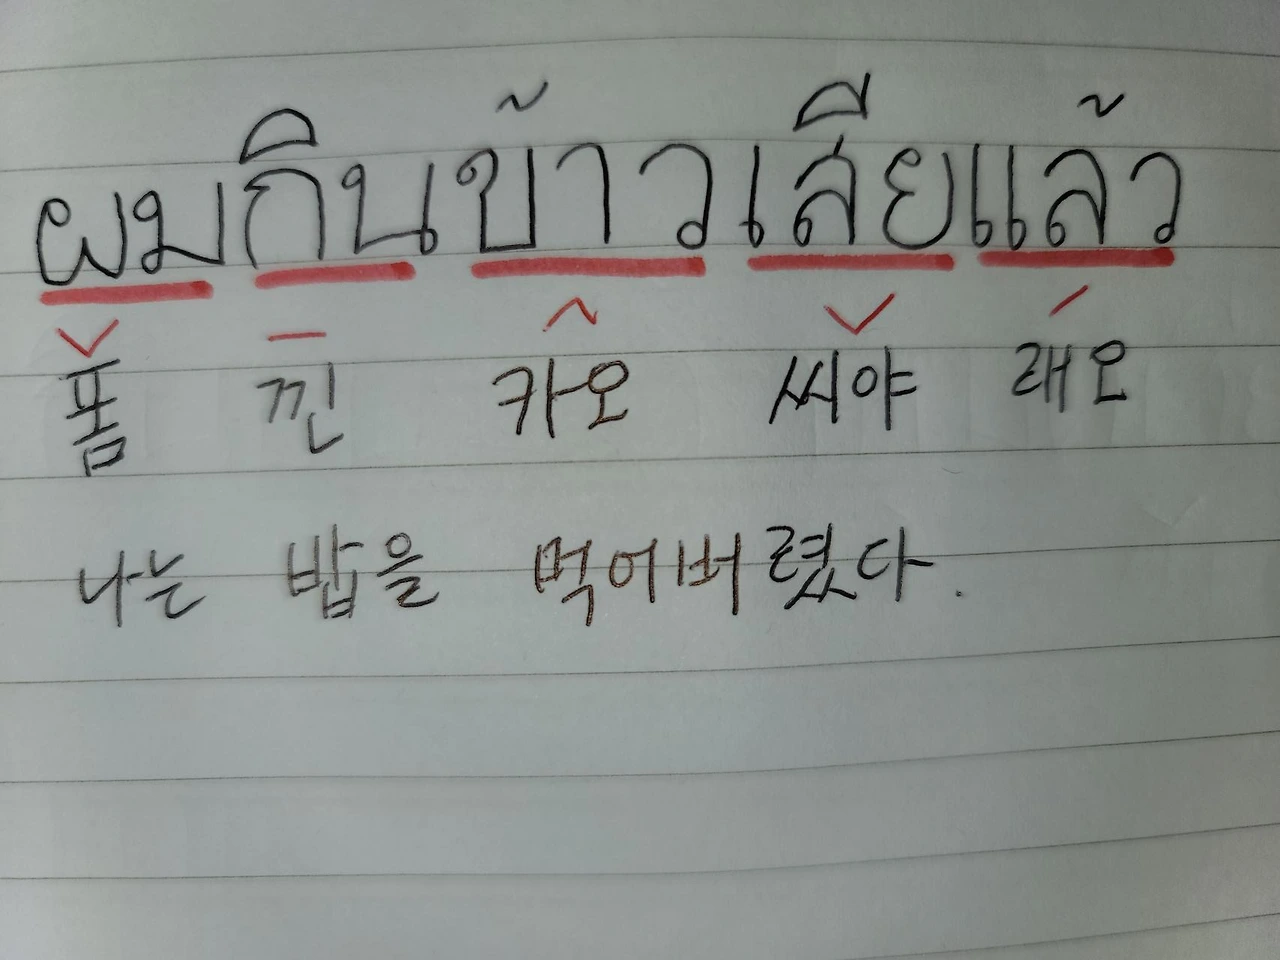 ผมกินข้าวเสียแล้ว
폼 낀 카오 씨야 래오
나는 밥을 먹어버렸다.